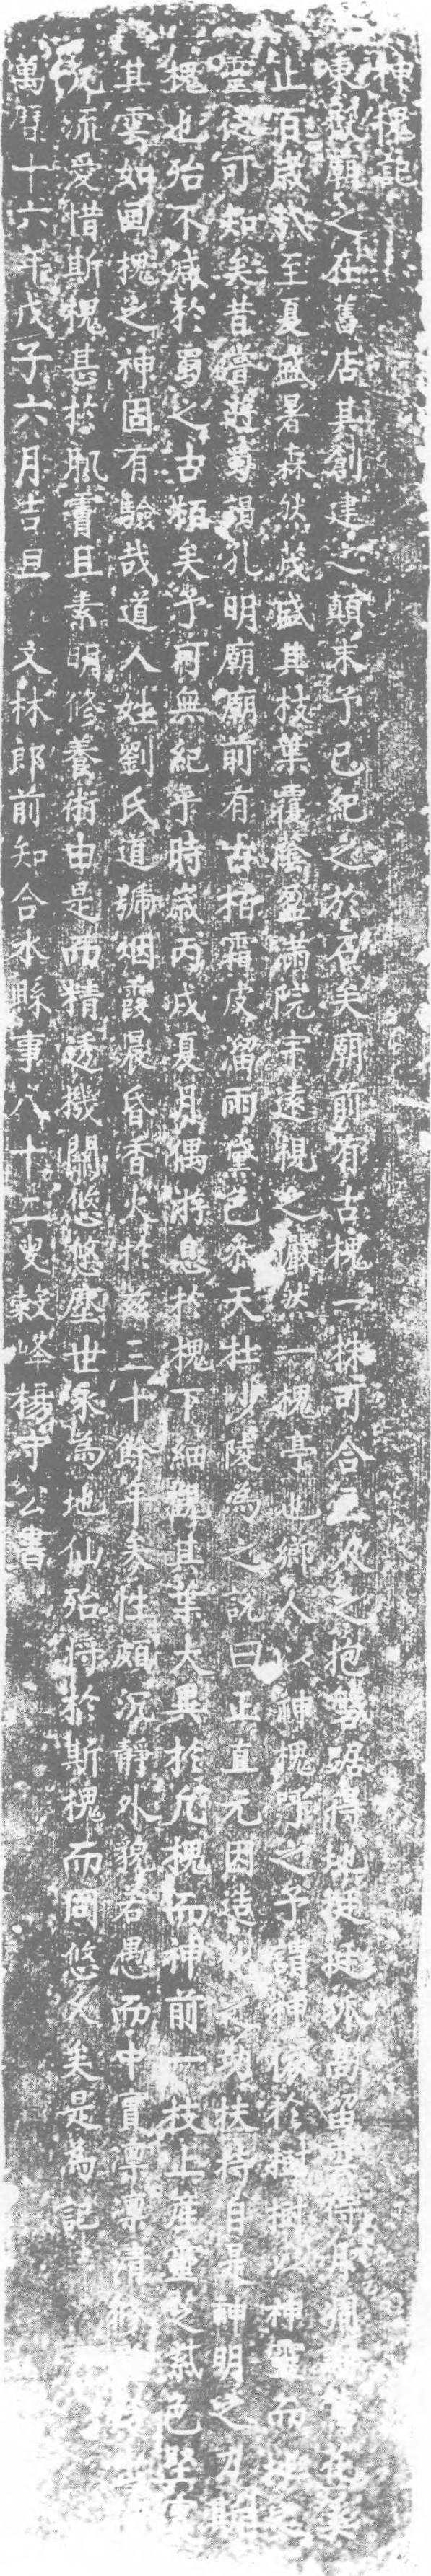 神槐記
東嶽廟之在舊店其創建之顛末予已紀之於石矣廟前有古槐一株可合三人之抱磐踞得地
止百歲哉至夏盛暑森然茂盛其枝葉覆蔭盈滿院宇遠視之儼然一槐亭也鄉人以神槐呼之予謂神依於樹樹以神靈而
靈從可知矣昔嘗過蜀謁孔明廟廟前有古柏霜皮溜雨黛色參天杜少陵為之說曰正直元因造化功扶持自是神明之力
槐也殆不減於蜀之古柏矣予可無紀乎時歲丙戌夏月偶游息於槐下細觀其葉大異於凡槐而神前一枝上產靈芝紫色堅
其雲如囬槐之神固有驗哉道人姓劉氏道號烟霞晨昏香火於茲三十餘年矣性頗沉靜外貌若愚而中實凜凜清修
流愛惜斯槐甚於肌膚且素明修養術由是而精透機關悠悠塵世永為地仙殆將於斯槐而同悠久矣是為記
萬曆十六年戊子六月吉旦 文林郎前知合水縣事八十二叟穀峰楊守公書